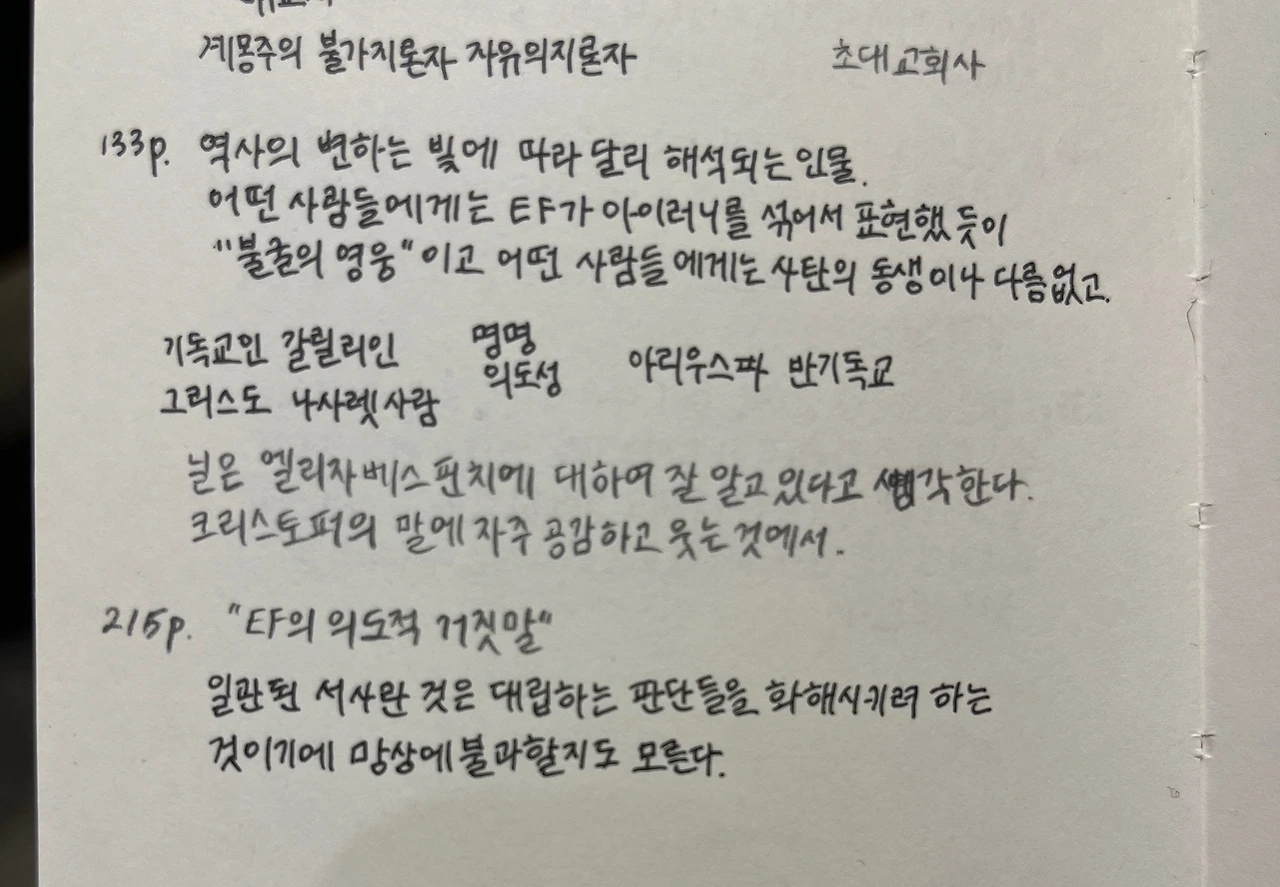 계몽주의 불가지론자 자유의지론자 초대교회사
133p. 역사의 변하는 빛에 따라 달리 해석되는 인물.
어떤 사람들에게는 EF가 아이러니를 섞어서 표현했듯이
"불굴의 영웅"이고 어떤 사람들에게는 사탄의 동생이나 다름없고.
기독교인 갈릴리인 명명
그리스도 나사렛사람 의도성 아리우스파 반기독교
닐은 엘리자베스핀치에 대하여 잘 알고 있다고 생각한다.
크리스토퍼의 말에 자주 공감하고 웃는 것에서.
215p. "EF의 의도적 거짓말"
일관된 서사란 것은 대립하는 판단들을 화해시키려 하는
것이기에 망상에 불과할지도 모른다.